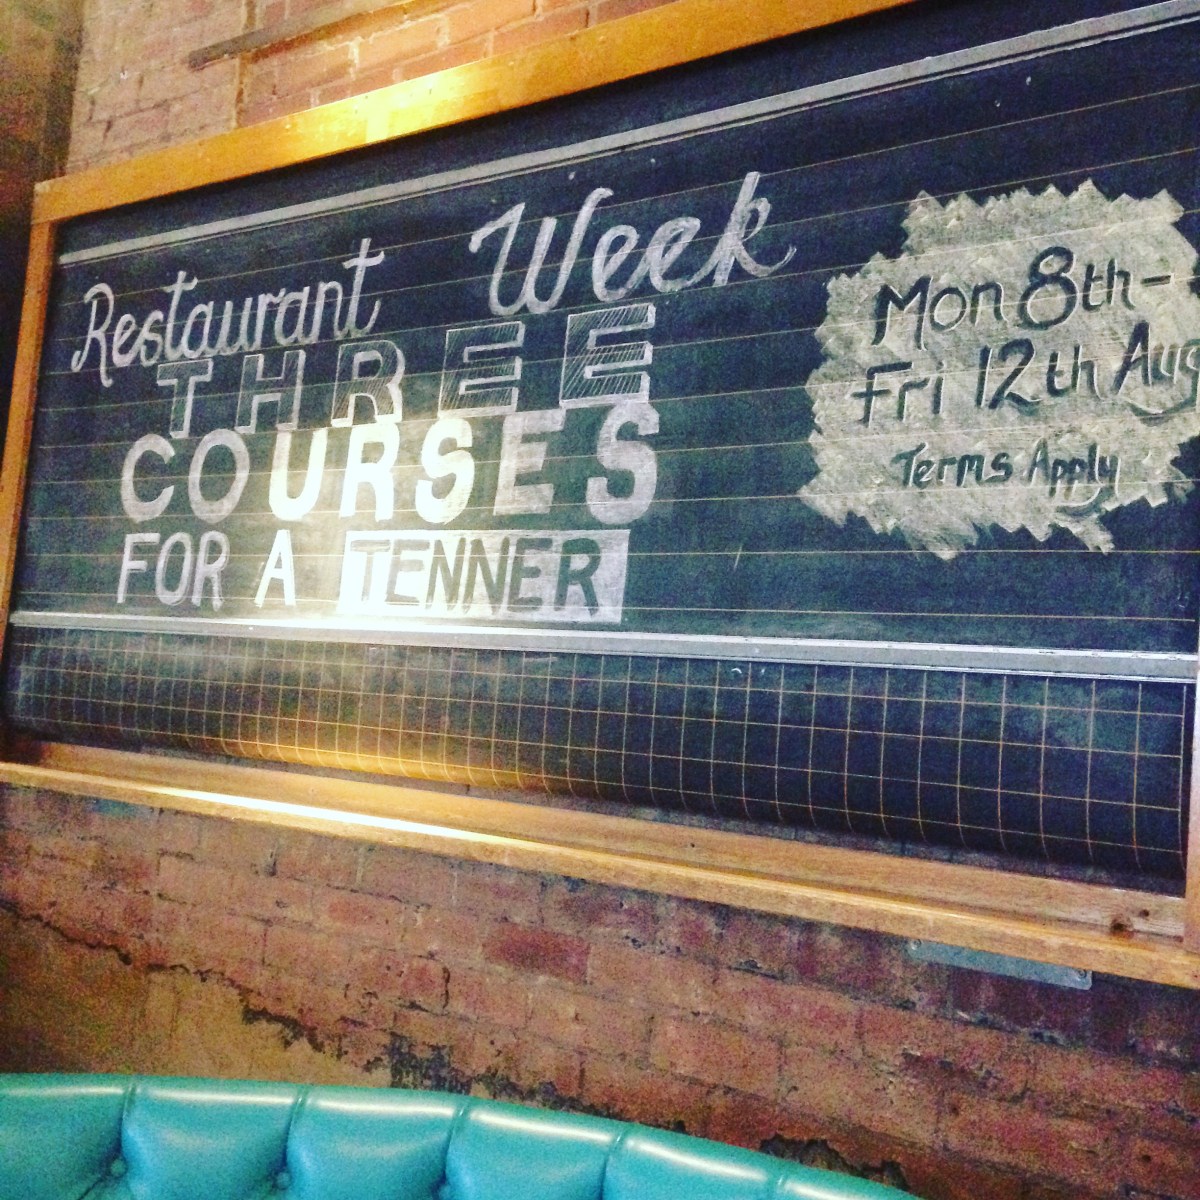 Restaurant Week
THREE
COURSES
FOR A TENNER
Mon 8th-
Fri 12th Aug
Terms Apply